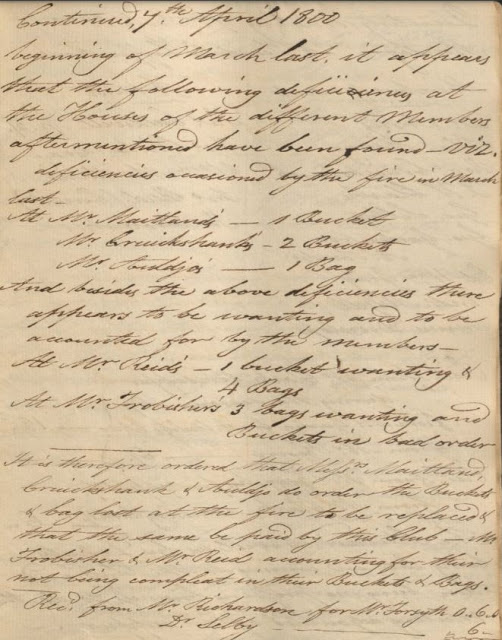 Continued, 7th April 1800
beginning of March last, it appears
that the following deficiencies at
the Houses of the different Members
aftermentioned have been found—viz.
deficiencies occasioned by the fire in March
last—
At Mr. Maitland's — 1 Bucket
Mr Cruickshank's - 2 Buckets
Mr. Auldjo's — 1 Bag
And besides the above deficiencies there
appears to be wanting and to be
accounted for by the members—
At Mr Reid's — 1 bucket wanting &
4 Bags
At Mr. Frobisher's 3 bags wanting and
Buckets in bad order
It is therefore ordered that Messrs Maitland
Cruickshank & Auldjo do order the Buckets
& bag lost at the fire to be replaced &
that the same be paid by this Club — Mr
Frobisher & Mr. Reid accounting for their
not being compleat in their Buckets & Bags.
Recd. from Mr. Richardson for Mr Forsyth 0..6..
Dr. Selby 6-